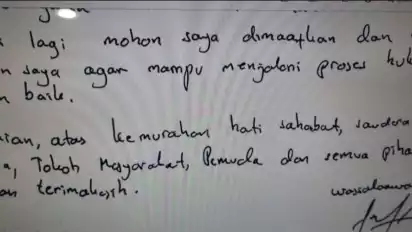 lagi mohon saya dimaafkan dan
saya agar mampu menjalani proses
baik.
atas kemurahan hati sahabat, saudara
Tokoh Masyarakat, Pemuda dan semua
terimakasih.